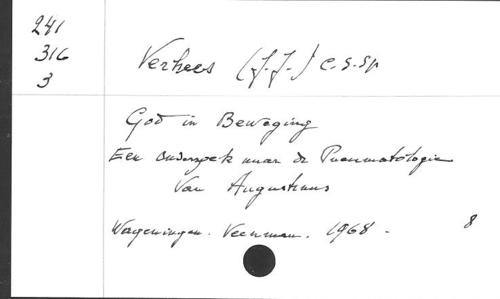 241
316
3
Verhees (J.J.) C.S.Sp
God in Beweging
Een onderzoek naar de Pneumatologie
Van Augustinus
Wageningen. Veenman. 1968. 8